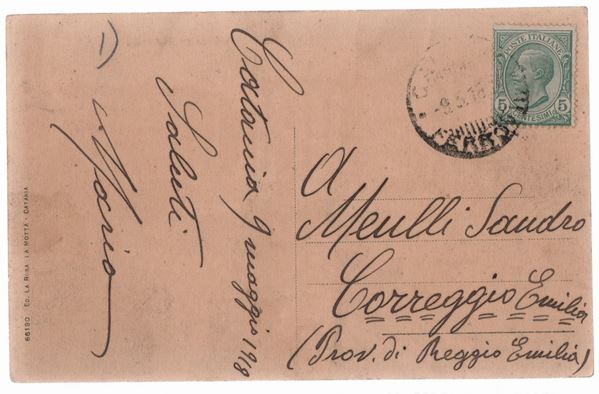 Catania 9 maggio 1918
Saluti
Mario
1)
POSTE ITALIANE
5 5
CENTESIMI
-9.5.18
A
Menlli Sandro
Correggio Emilia
(Prov. di Reggio Emilia)
66190 ED. LA RISA LA MOTTA - CATANIA